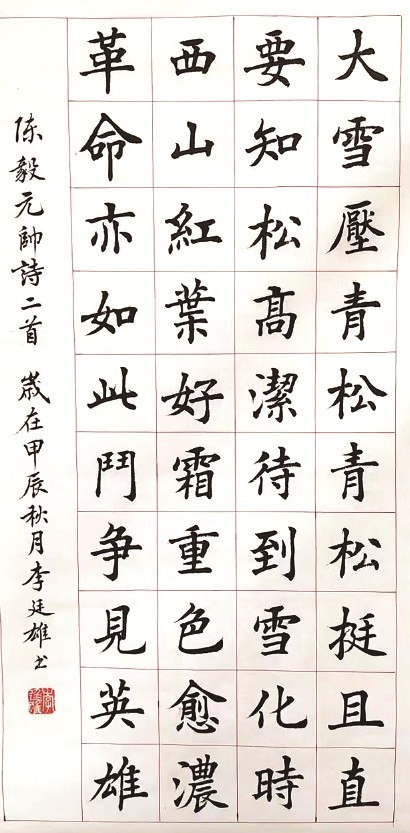 大雪壓青松青松挺且直
要知松高潔待到雪化時
西山紅葉好霜重色愈濃
革命亦如此鬥争見英雄
陈毅元帥詩二首 歲在甲辰秋月李廷雄书